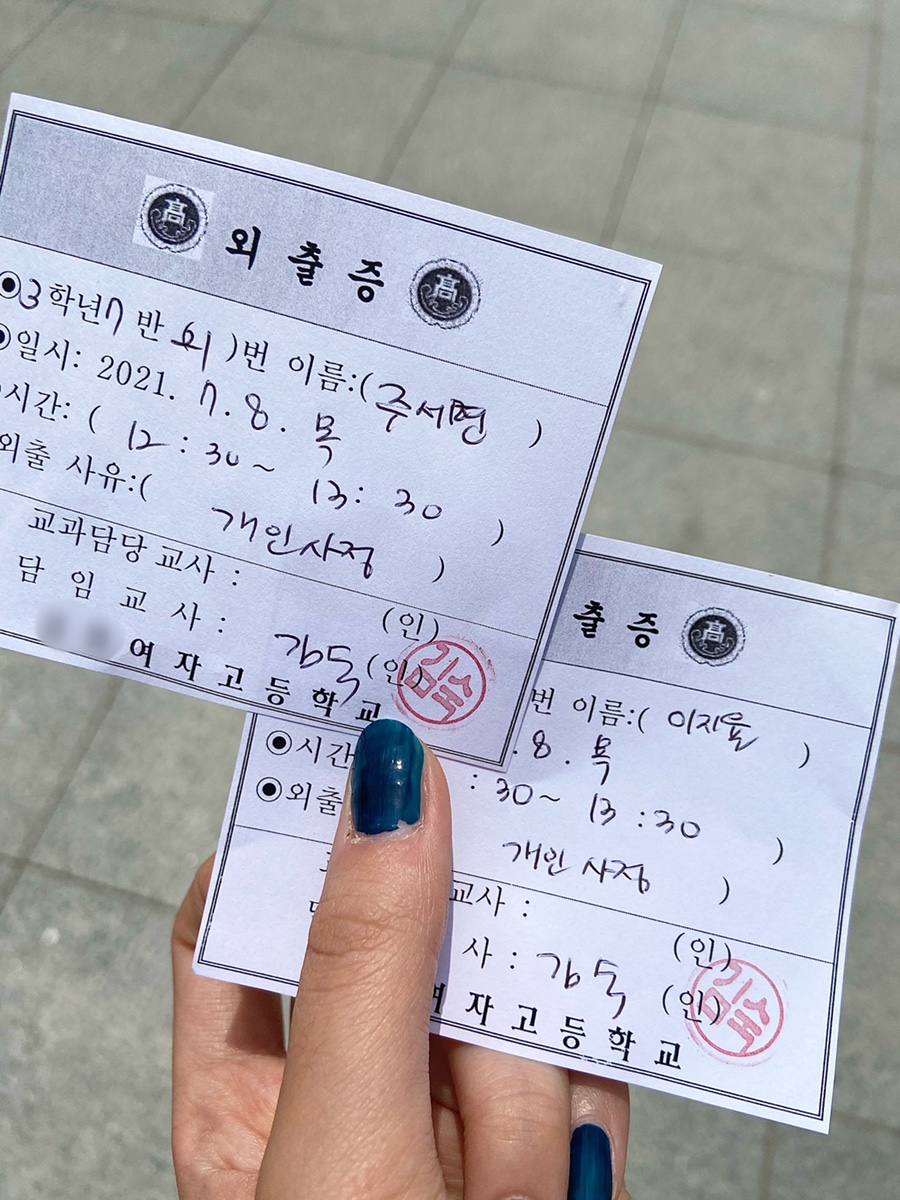 외출증
3학년 7반 외)번 이름:(주서현)
일시: 2021. 7. 8. 목
시간: ( 12 : 30 ~ 13 : 30 )
외출 사유:( 개인사정 )
교과담당 교사 : (인)
담 임 교 사 : 김숙 (인) 김숙
여자고등학교
출증
번 이름:( 이지율 )
. 8 . 목
시간 : 30 ~ 13 : 30 )
외출 개인 사정 )
교사 : (인)
사 : 김숙 (인) 김숙
여자고등학교